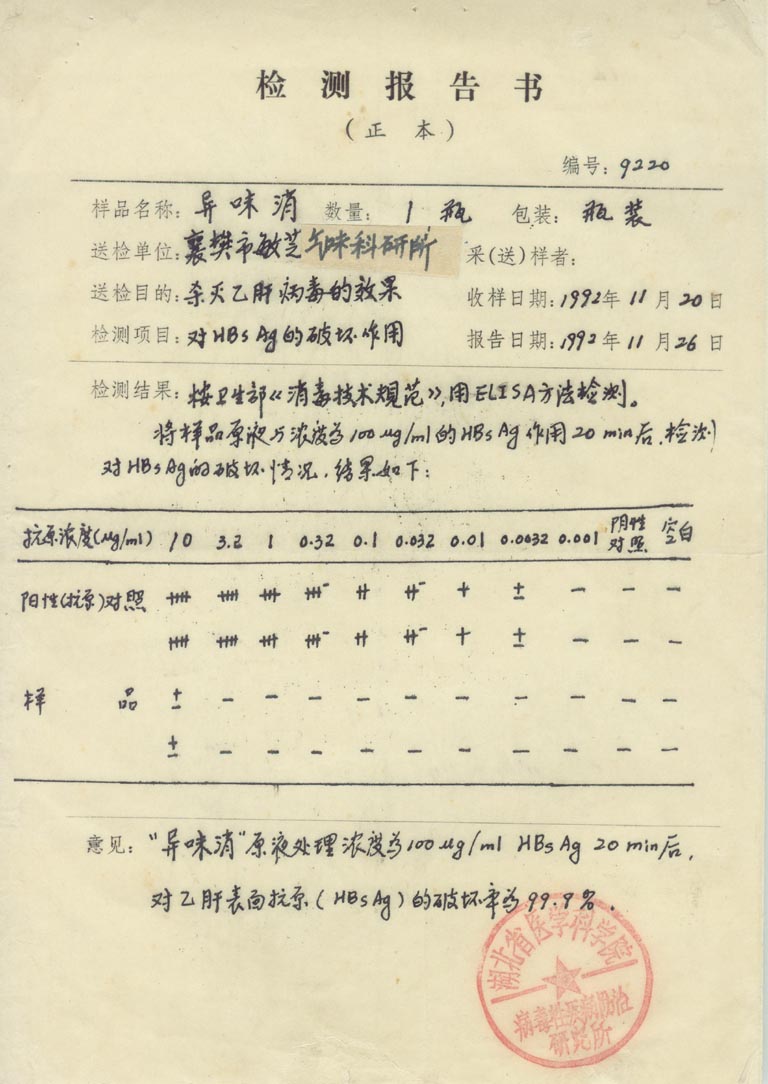 检测报告书
(正本)
编号: 9220
样品名称: 异味消 数量: 1 瓶 包装: 瓶装
送检单位: 襄樊市敏芝气味科研所 采(送)样者:
送检目的: 杀灭乙肝病毒的效果 收样日期: 1992年 11 月 20 日
检测项目: 对HBsAg的破坏作用 报告日期: 1992年 11 月 26 日
检测结果: 按卫生部《消毒技术规范》,用ELISA方法检测。
将样品原液与浓度为100μg/ml的HBsAg作用20min后,检测
对HBsAg的破坏情况,结果如下:
抗原浓度(μg/ml) 10 3.2 1 0.32 0.1 0.032 0.01 0.0032 0.001 阴性对照 空白
阳性(抗原)对照 卌 卌 卅 卅⁻ 廾 廾⁻ + ± − − −
卌 卌 卅 卅⁻ 廾 廾⁻ + ± − − −
样品 ± − − − − − − − − − −
± − − − − − − − − − −
意见: "异味消"原液处理浓度为100μg/ml HBsAg 20min后,
对乙肝表面抗原(HBsAg)的破坏率为99.9%.
湖北省医学科学院
病毒性疾病防治
研究所